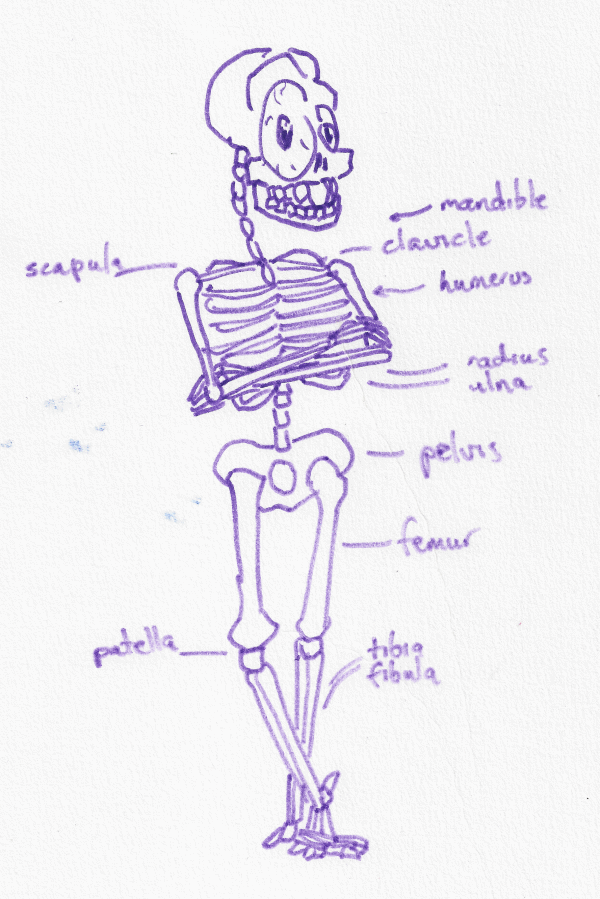 mandible
clavicle
scapula
humerus
radius
ulna
pelvis
femur
patella
tibia
fibula